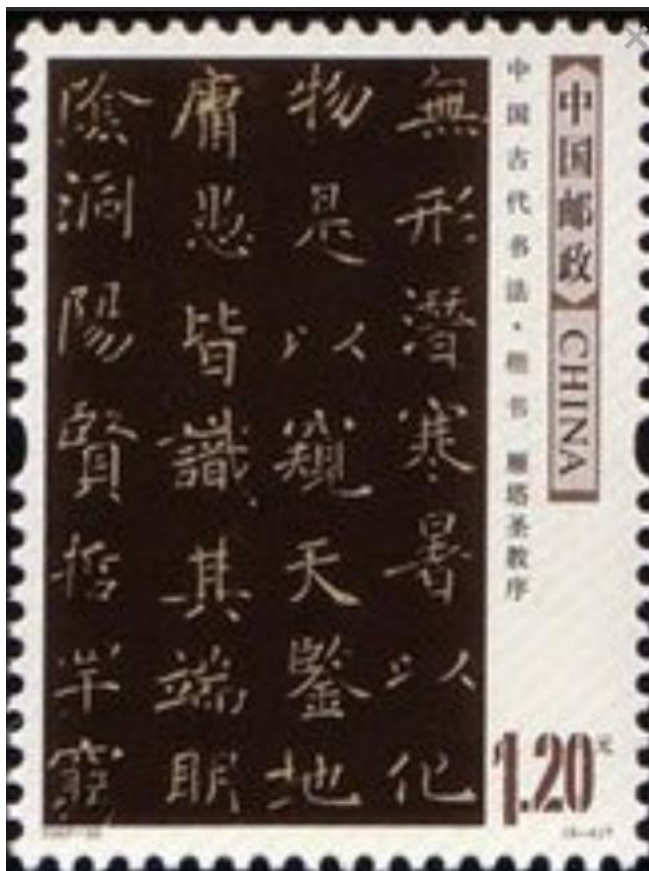 中国邮政 CHINA
中国古代书法·楷书 雁塔圣教序
無形潛寒暑以化
物是以窺天鑒地
庸愚皆識其端眀
陰洞陽賢哲罕窮
1.20元